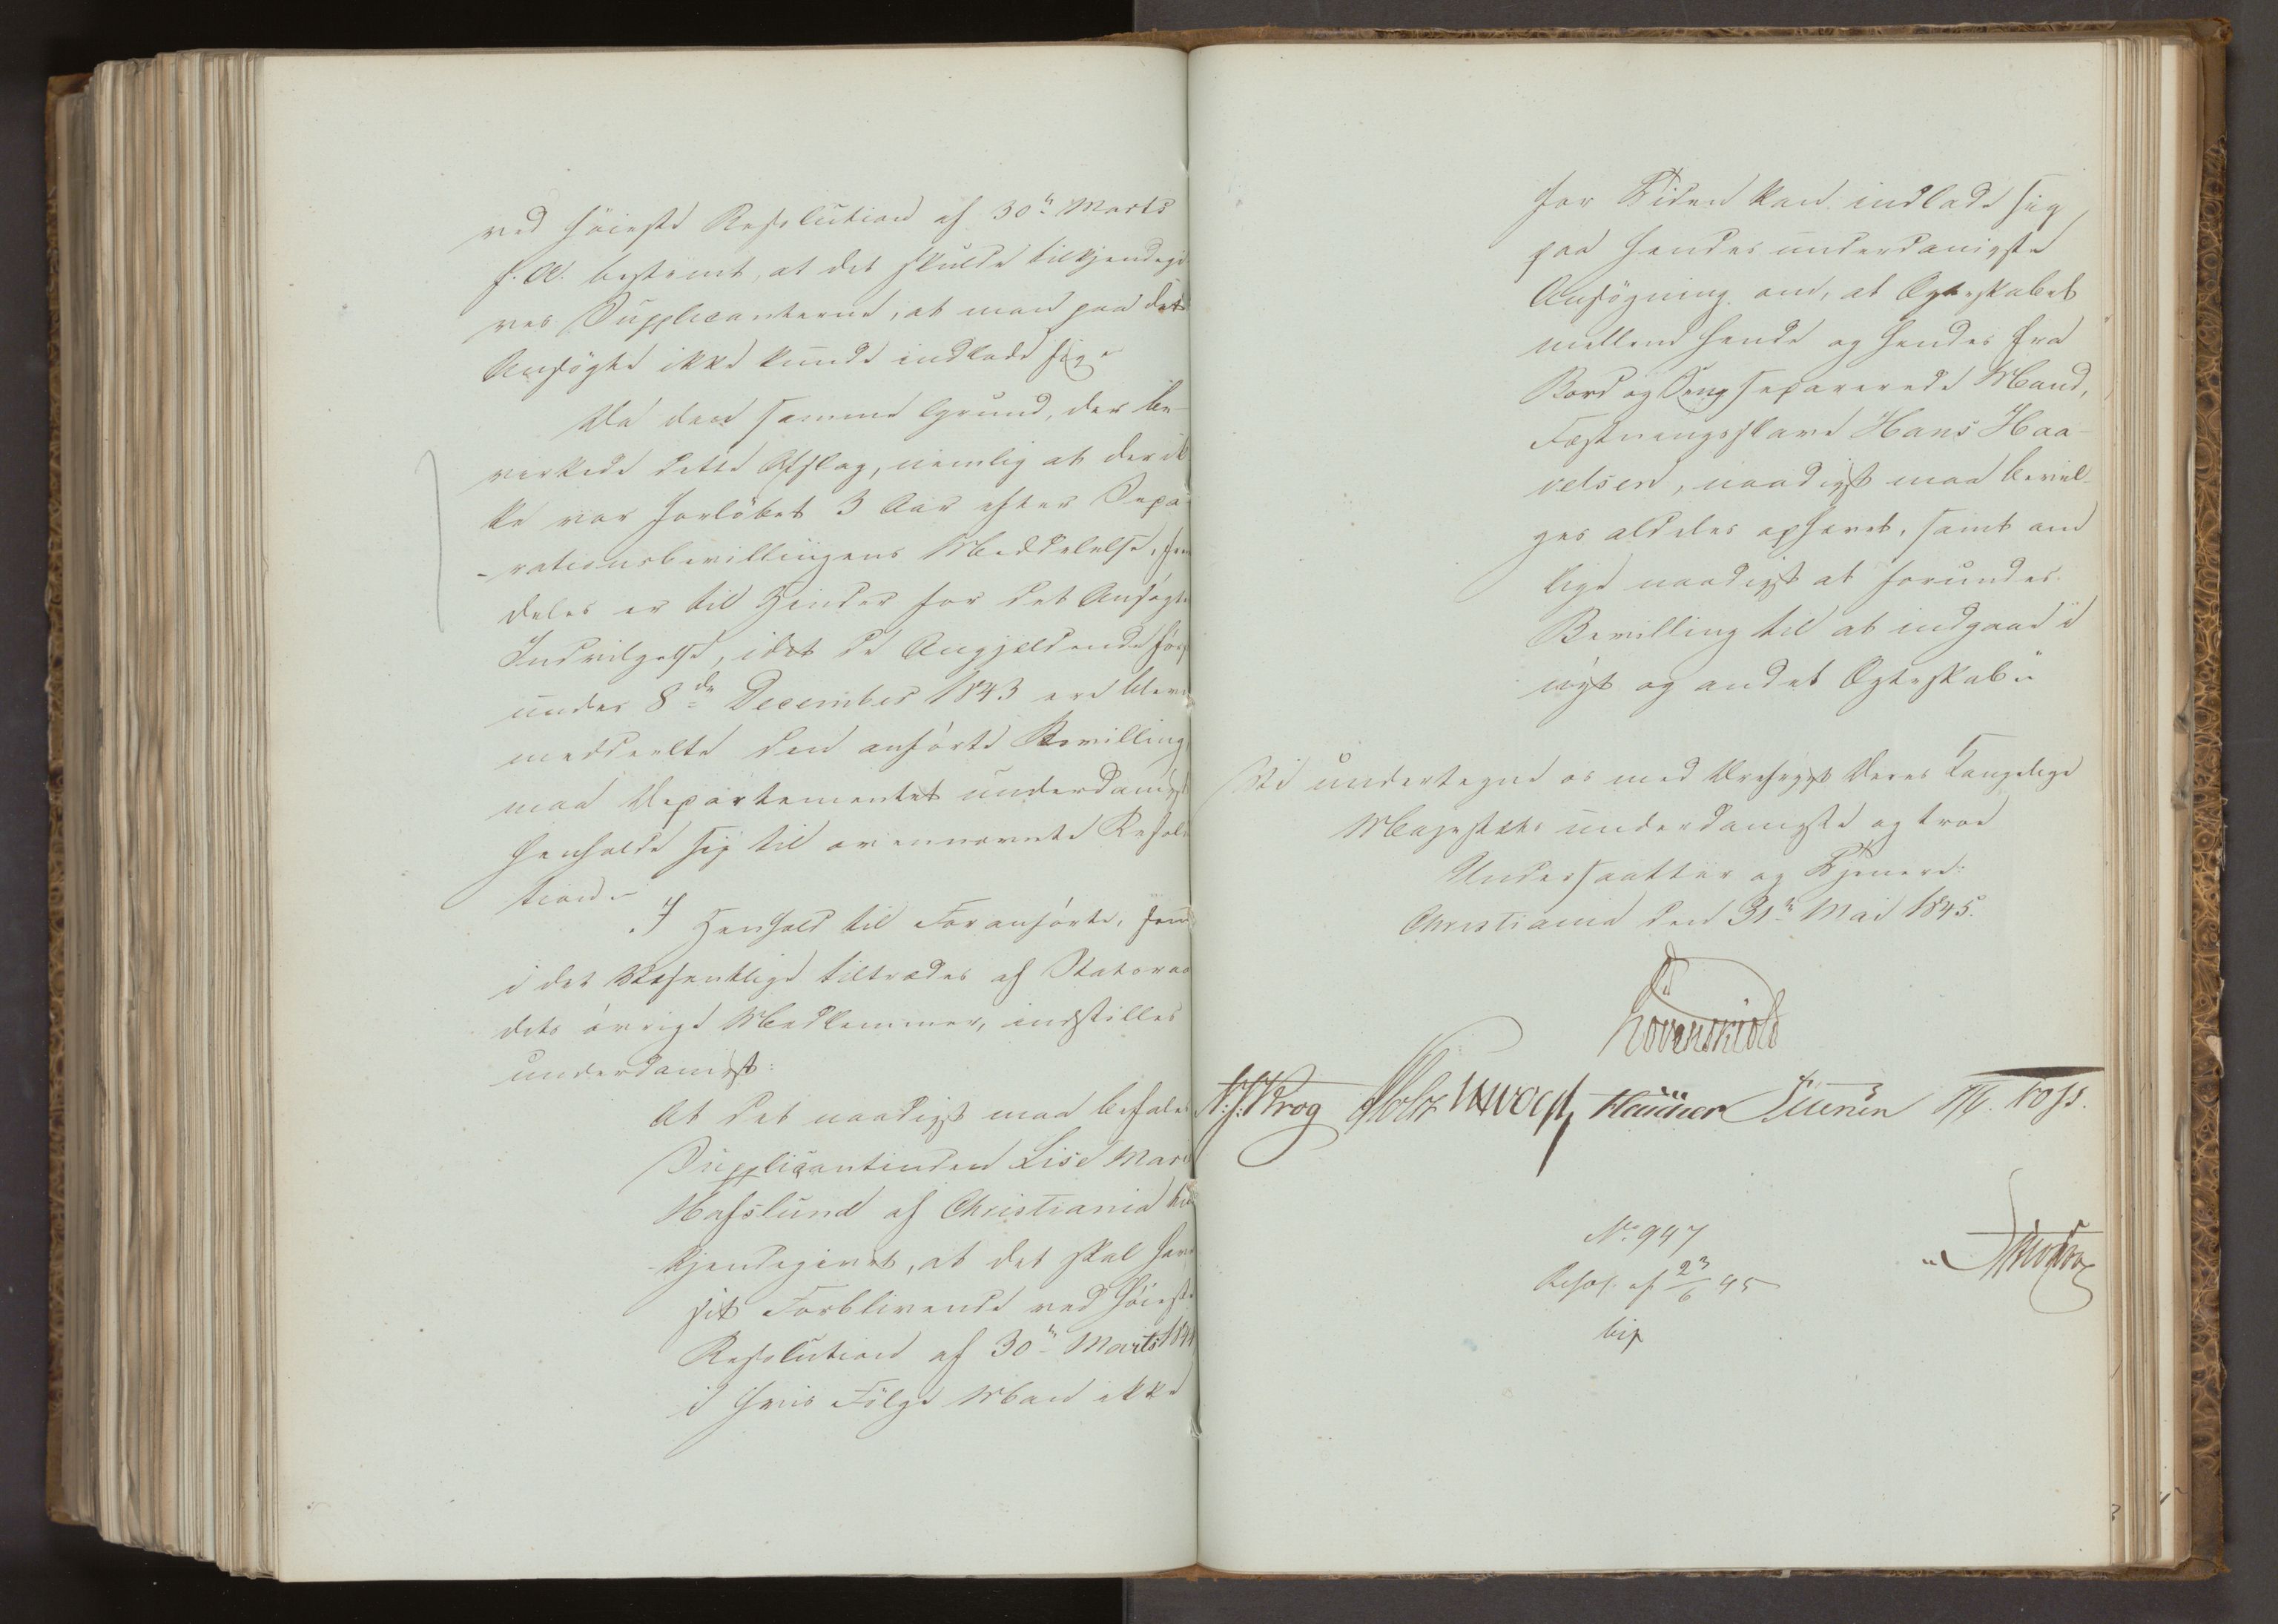 ved höieste Resolution af 30te Marts
f. A. bestemt, at det skulde tilkjendegi-
ves Supplicanterne, at man paa det
Ansögte ikke kunde indlade sig.
Da den samme Grund, der be-
virkede dette Afslag, nemlig at der ik-
ke var forløbet 3 Aar efter Sepa-
rationsbevillingens Meddelelse, frem
deles er til Hinder for det Ansøgtes
Indvilgelse, idet de Angjældende först
under 8de December 1843 ere blevne
meddeelte den anførte Bevilling
maa Departementet underdanigst
henholde sig til ovennævnte Resolu
tion.
I Henhold til Foranførte, som
i det Væsentlige tiltrædes af Statsraa
dets øvrige Medlemmer, indstilles
underdanigst:
At det naadigst maa befales
Supplicantinden Lise Marie
Hafslund af Christiania til-
kjendegivet, at det skal have
sit Forblivende ved höieste
Resolution af 30te Marts 1844
i hvis Følge Man ikke
for Tiden kan indlade sig
paa hendes underdanigste
Ansögning om, at Ægteskabet
mellem hende og hendes fra
Bord og Seng separerede Mand,
Fæstningsslave Hans Haa-
velsen, naadigst maa bevil-
ges aldeles ophævet, samt om
lige naadigst at forundes
Bevilling til at indgaae i
nyt og andet Ægteskab.
Vi undertegne os med Ærefrygt Deres Kongelige
Majestæts underdanigste og troe
Undersaatter og Tjenere.
Christiania den 31te Mai 1845.
Lövenskiold
N: J: Krog Holst JHVogt Sibbern
No 947
Resol. af 23/6 45
bif